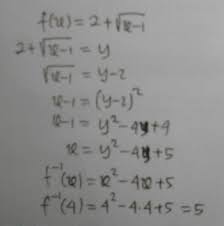 f(x) = 2 + √x-1
2 + √x-1 = y
√x-1 = y-2
x-1 = (y-2)²
x-1 = y² - 4y + 4
x = y² - 4y + 5
f⁻¹(x) = x² - 4x + 5
f⁻¹(4) = 4² - 4·4 + 5 = 5